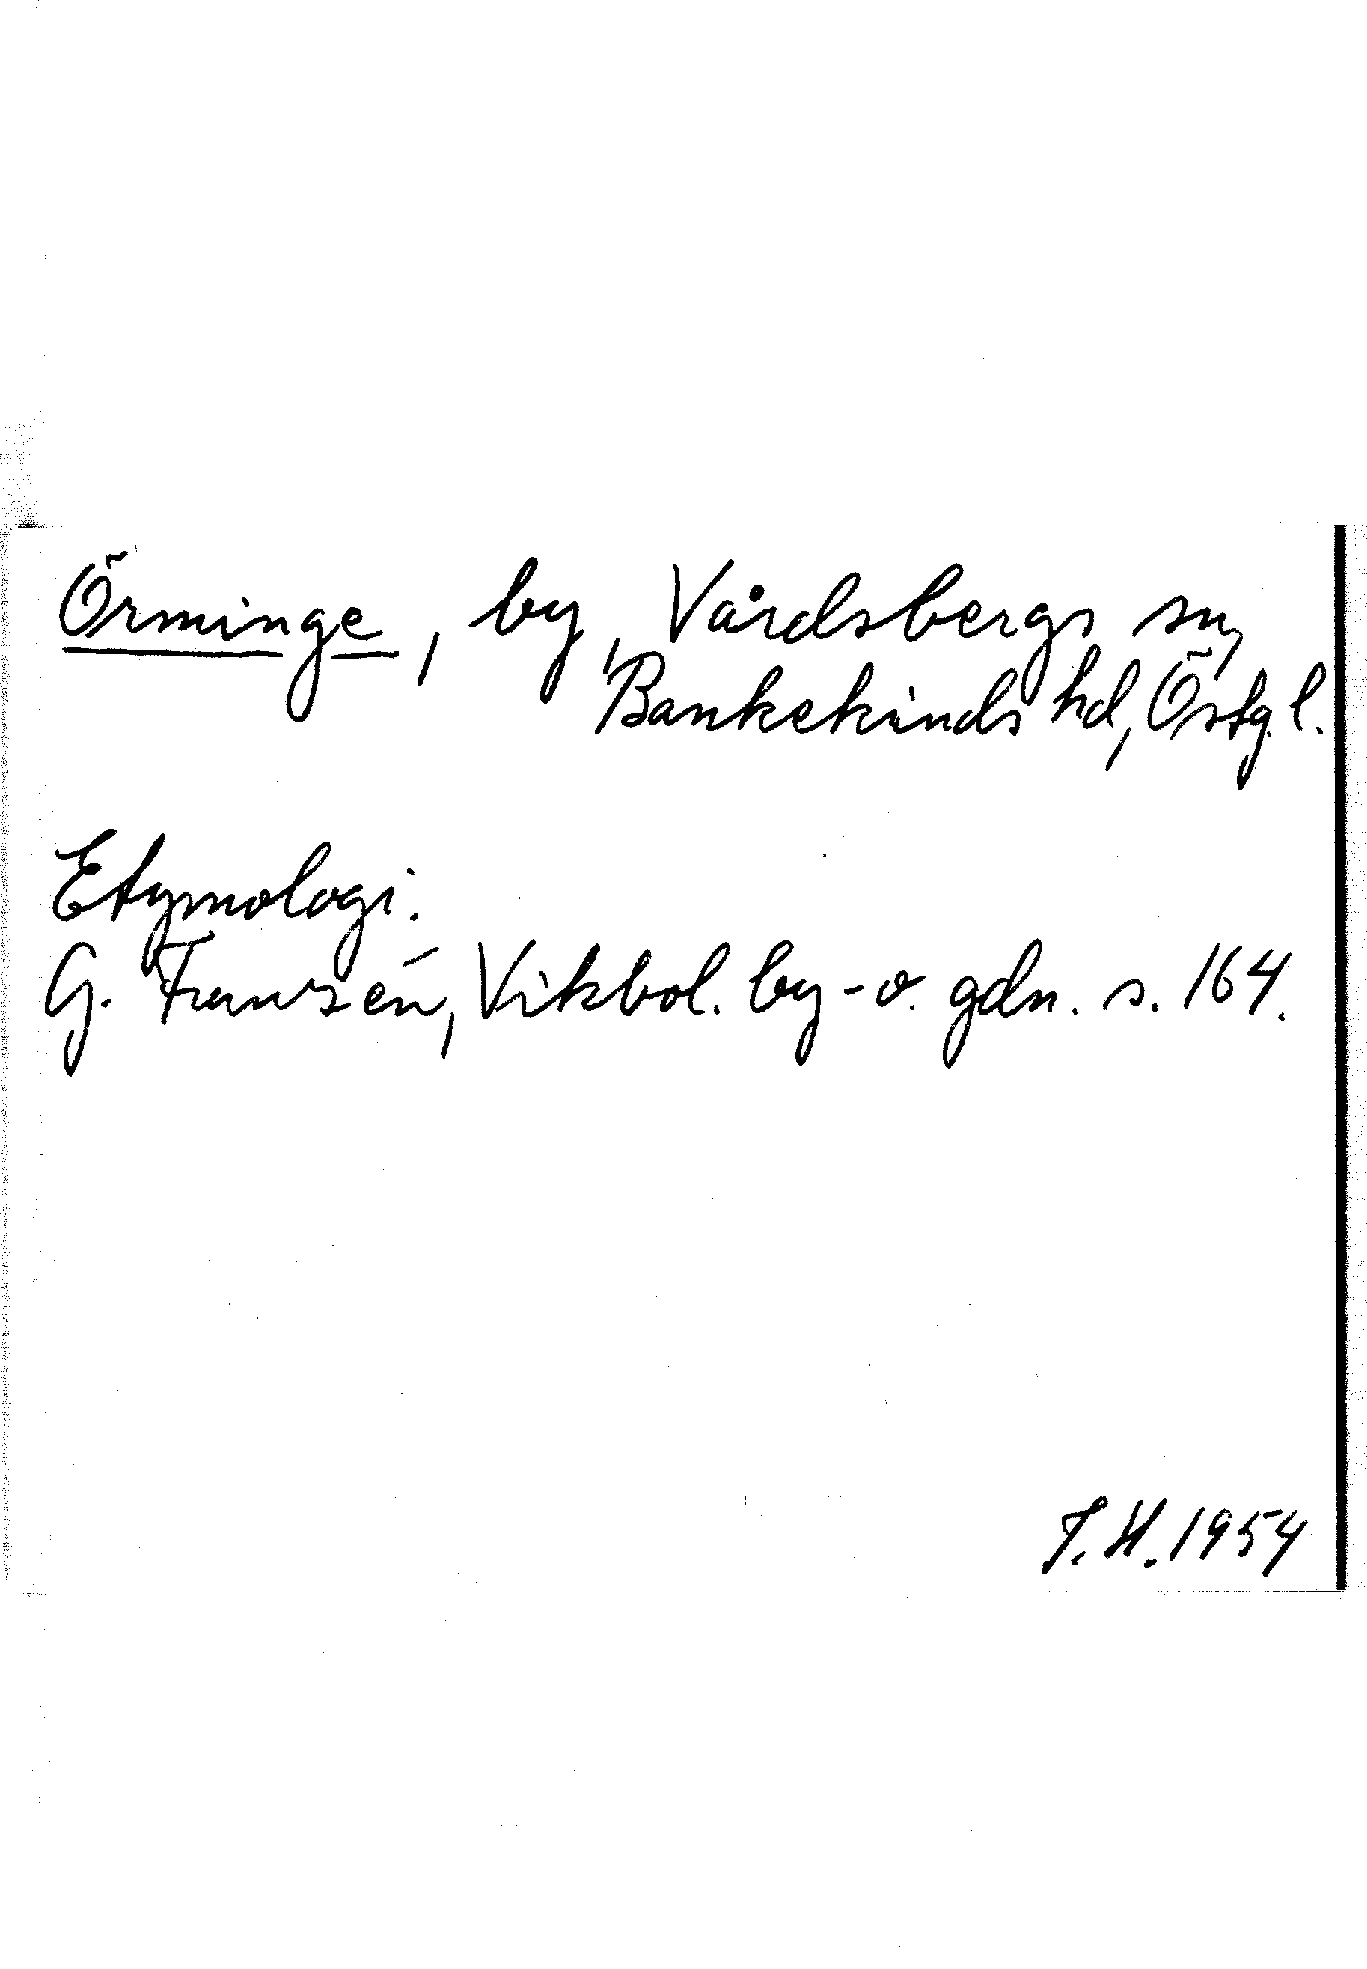 Örminge, by, Vårdsbergs sn,
Bankekinds hd, Östg. l.
Etymologi.
G. Franzén, Vikbol. by- o. gdn. s. 164.
T.H. 1954